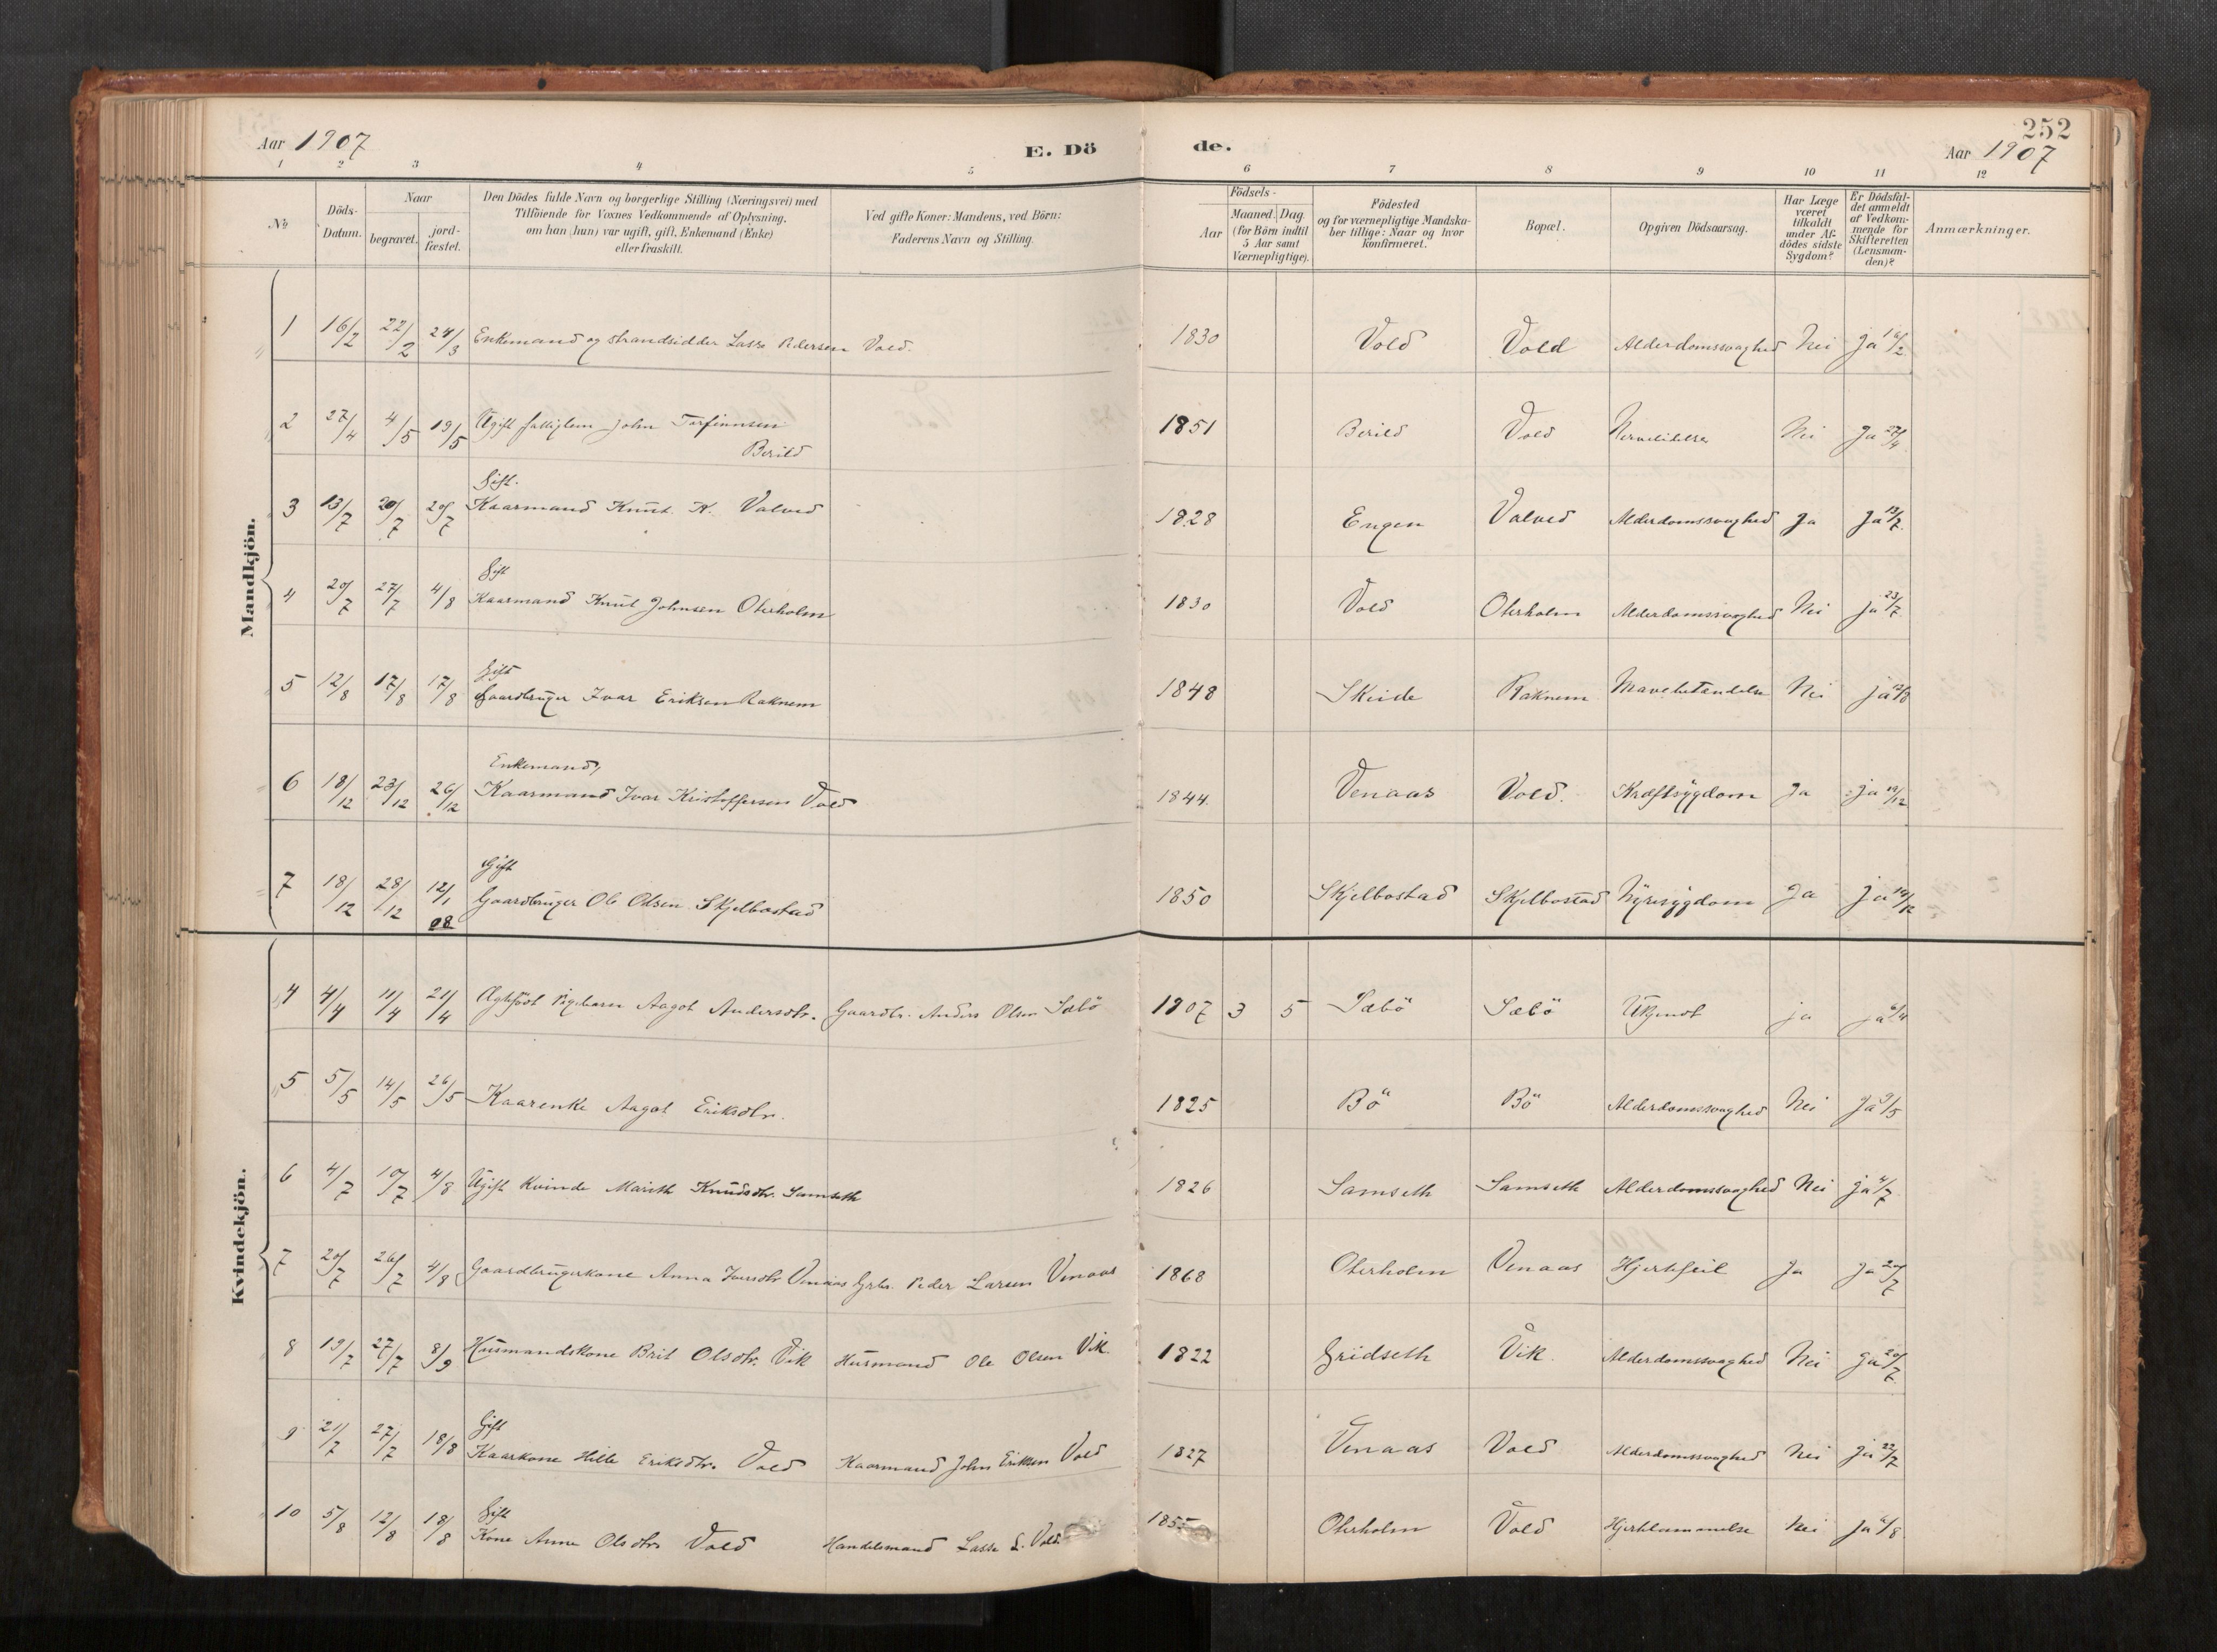 252
Aar 1907
E. Dö
de.
Aar 1907
1 2 3 4 5 6 7 8 9 10 11 12
№
Döds-Datum.
Naar
begravet.
jord-fæstet.
Den Dödes fulde Navn og borgerlige Stilling (Næringsvei) med
Tilföiende for Voxnes Vedkommende af Oplysning,
om han (hun) var ugift, gift, Enkemand (Enke)
eller fraskilt.
Ved gifte Koner: Mandens, ved Börn:
Faderens Navn og Stilling.
Födsels-
Aar
Maaned. Dag.
(for Börn indtil
5 Aar samt
Værnepligtige).
Födested
og for værnepligtige Mandska-
ber tillige: Naar og hvor
Konfirmeret.
Bopæl.
Opgiven Dödsaarsag.
Har Læge
været
tilkaldt
under Af-
dödes sidste
Sygdom?
Er Dödsfal-
det anmeldt
af Vedkom-
mende for
Skifteretten
(Lensman-
den)?
Anmærkninger.
Mandkjön.
1 16/2 22/2 24/3 Enkemand og strandsidder Lasse Pedersen Vold. 1830 Vold Vold Alderdomssvaghed Nei Ja 16/2
2 27/4 4/5 19/5 Ugift fattiglem John Torfinnsen
Berild 1851 Berild Vold Nervelidelse Nei Ja 27/4
Gift.
3 13/7 20/7 20/7 Kaarmand Knut K. Valved 1828 Engen Valved Alderdomssvaghed Ja Ja 13/7
Gift
4 20/7 27/7 4/8 Kaarmand Knut Johnsen Oterholm 1830 Vold Oterholm Alderdomssvaghed Nei Ja 23/7
Gift
5 12/8 17/8 17/8 Gaardbruger Ivar Eriksen Raknem 1848 Skeide Raknem Mavebetændelse Nei ja 12/8
Enkemand,
6 18/12 23/12 26/12 Kaarmand Ivar Kristoffersen Vold 1844. Venaas Vold. Kræftsygdom Ja Ja 19/12
Gift
7 18/12 28/12 12/1 08 Gaardbruger Ole Olsen Skjelbostad 1850 Skjelbostad Skjelbostad Nyresygdom Ja Ja 19/12
Kvindekjön.
4 4/4 11/4 21/4 Ægtefödt Pigebarn Aagot Andersdtr. Gaardbr. Anders Olsen Sæbö 1907 3 5 Sæbö Sæbö Ukjendt ja ja 6/4
5 5/5 14/5 26/5 Kaarenke Aagot Eriksdtr. 1825 Bö Bö Alderdomssvaghed Nei Ja 9/5
6 4/7 10/7 4/8 Ugift Kvinde Marith Knudsdtr. Samseth 1826 Samseth Samseth Alderdomssvaghed Nei ja 4/7
7 20/7 26/7 4/8 Gaardbrugerkone Anna Iversdtr Venaas Grbr. Peder Larsen Venaas 1868 Oterholm Venaas Hjertefeil Ja Ja 20/7
8 19/7 27/7 8/9 Husmandskone Brit Olsdtr. Vik Husmand Ole Olsen Vik. 1822 Gridseth Vik. Alderdomssvaghed Nei Ja 20/7
Gift
9 21/7 27/7 18/8 Kaarkone Hilde Eriksdtr. Vold Kaarmand John Eriksen Vold 1827 Venaas Vold Alderdomssvaghed Nei Ja 22/7
Gift
10 5/8 12/8 18/8 Kone Anne Olsdtr Vold Handelsmand Lasse L. Vold. 1855 Oterholm Vold Hjertelammelse Nei Ja 6/8